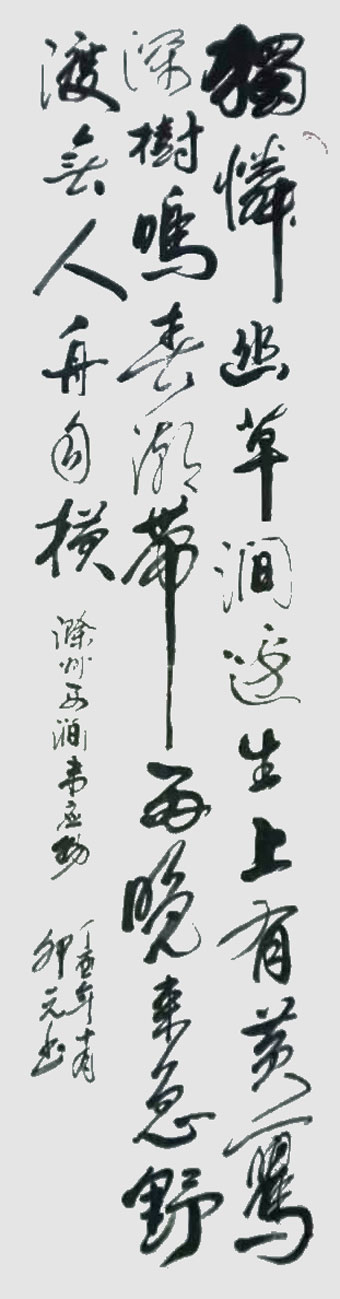 獨憐幽草澗邊生上有黃鸝
深樹鳴春潮帶雨晚來急野
渡無人舟自橫 滁州西澗韋應物
年
元书